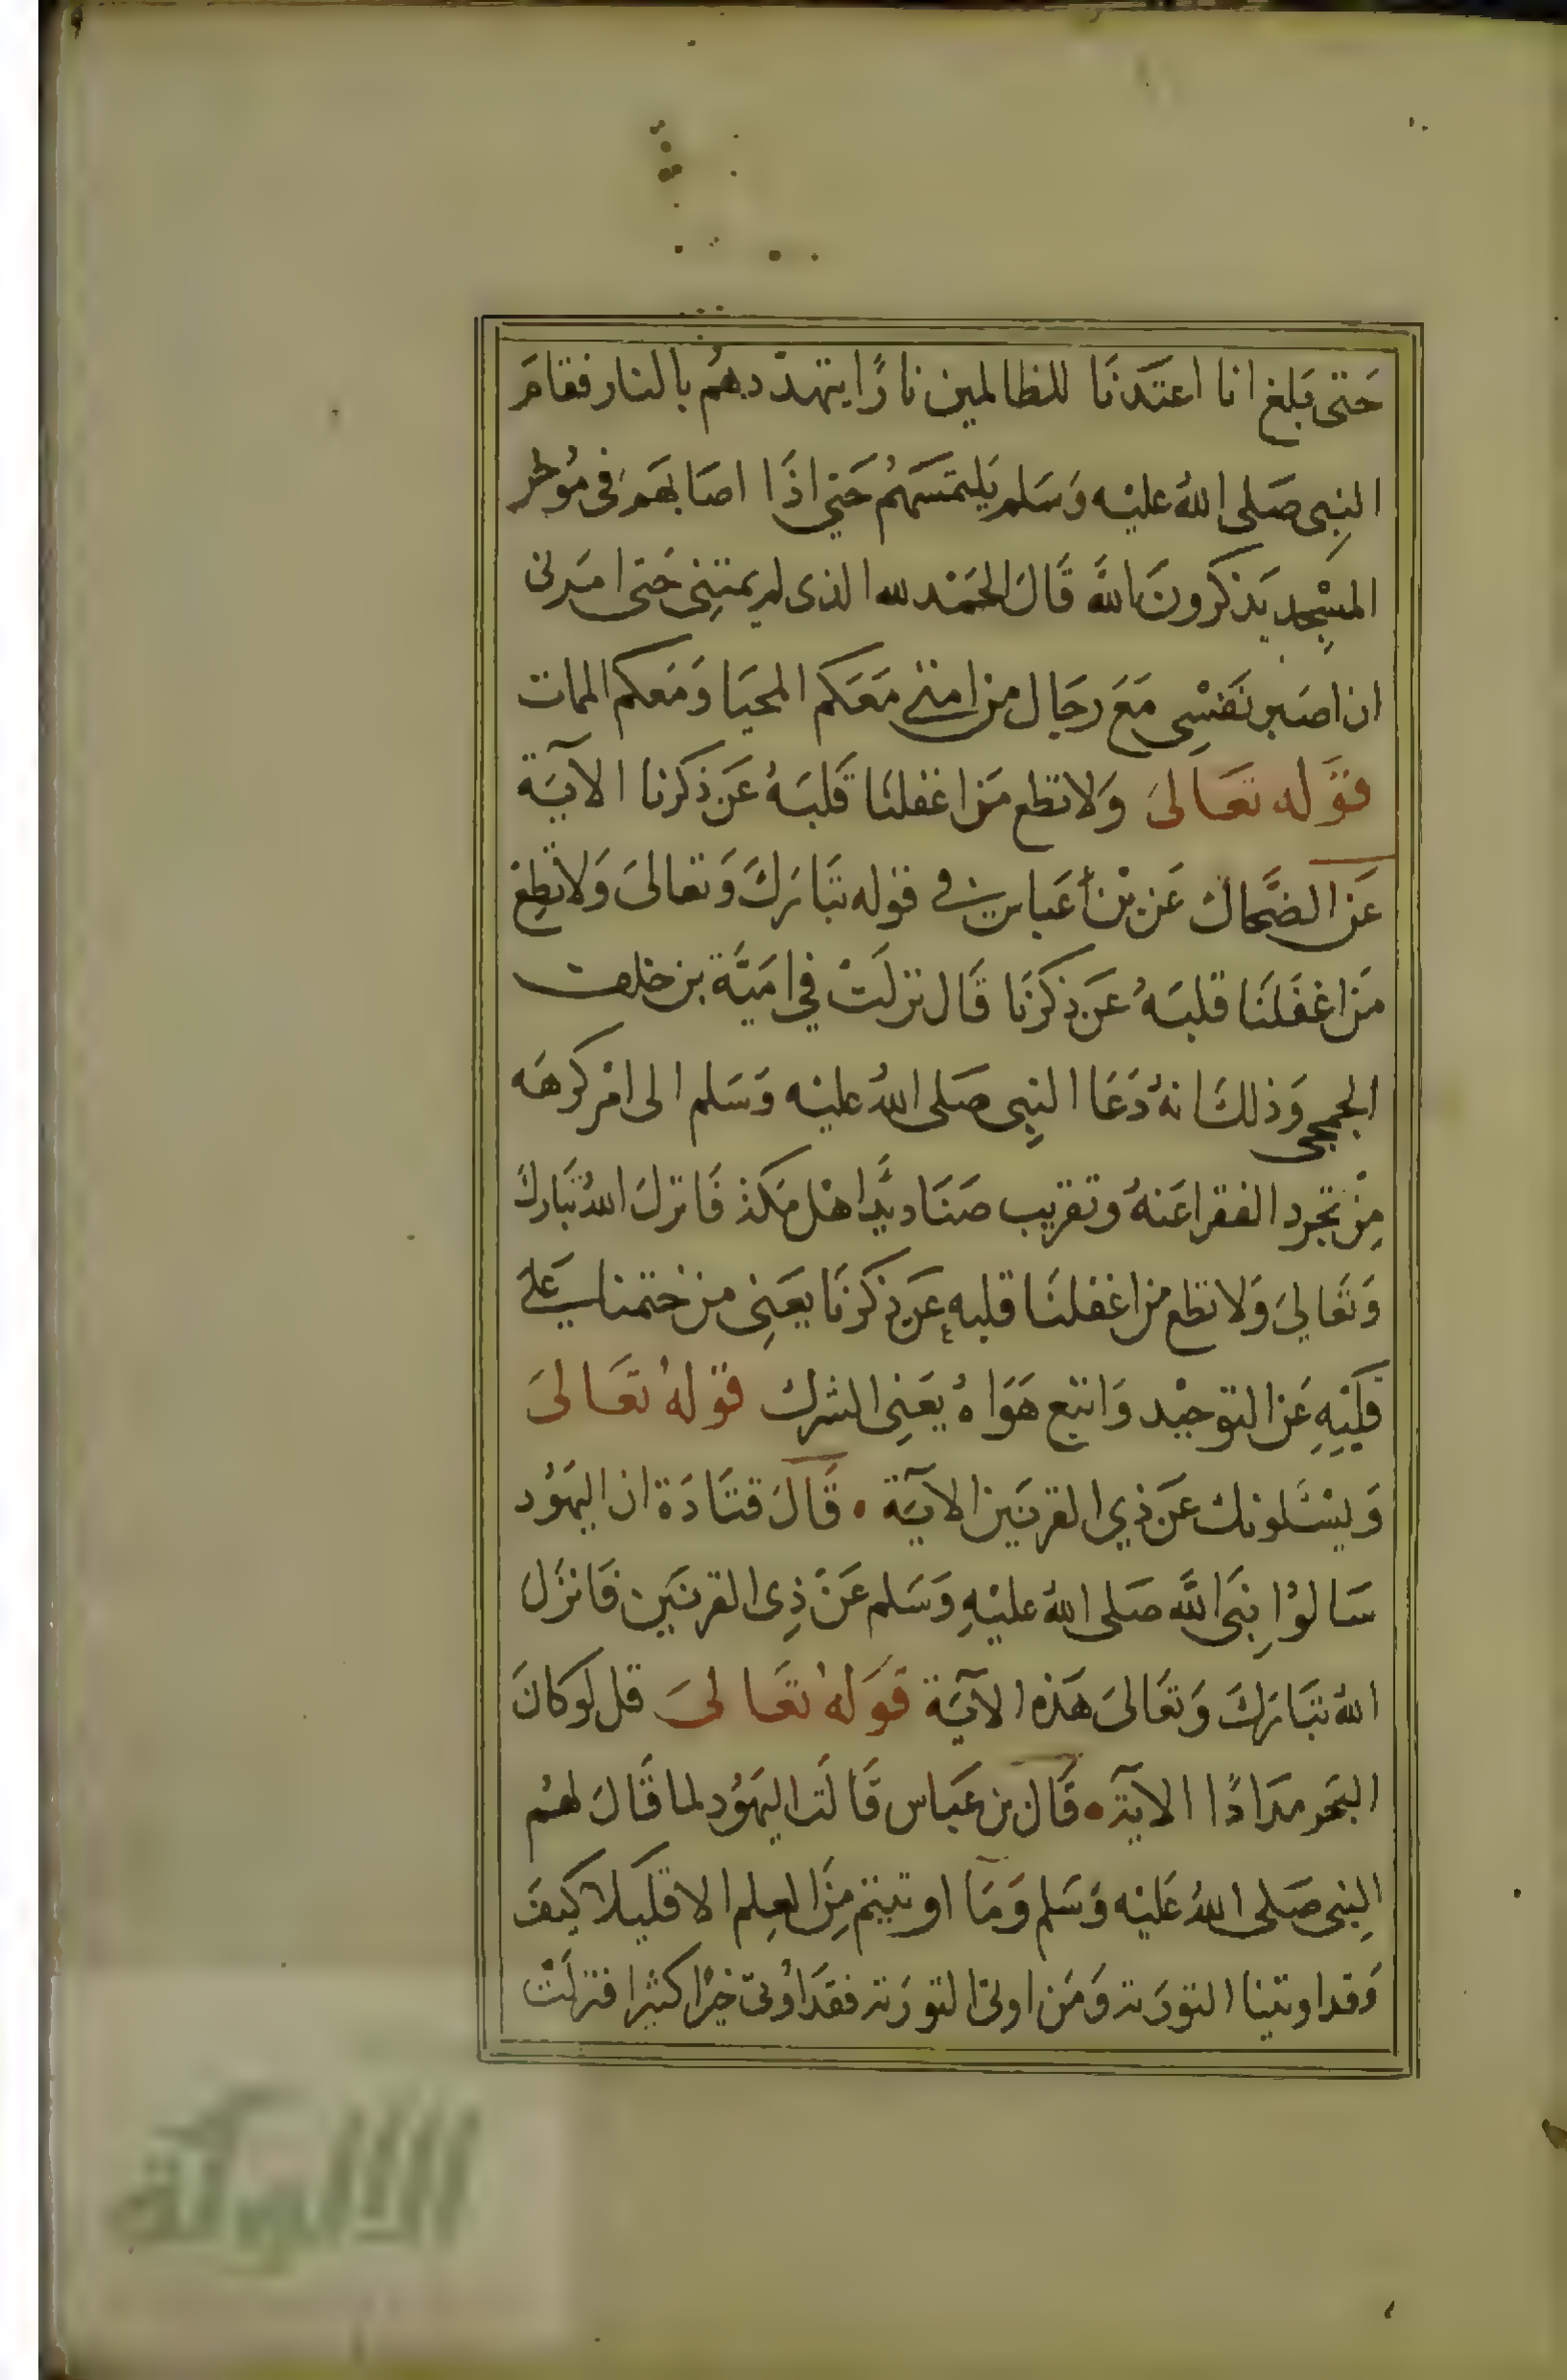 حَتى بَلغ انا اعتَدنَا للظالمين نارًا يتهدّدهُم بالنار فقامَ
النِبى صَلى اللهُ عليْه وَسَلم يَلتمسَهُم حَتي اذَا اصَابهَم فى مُوخر
المسْجِد يَذكرونَ اللهَ قَالَ الحَمْد لله الذى لم يمتنِى حَتى امَرنى
ان اصَبر نَفسْى مَعَ رجَال من امتى مَعَكم المحيَا وَمَعكم الممات
قوَله تعَالىَ وَلا تطع مَن اغفلنَا قَلبَهُ عَن ذكرنا الآيَة
عَن الضَّحاك عَن بْن عَباس فى قوله تبَارَكَ وَتعَالىَ وَلا تُطِعْ
مَن اغفَلَنَا قلبَهُ عَن ذِكرنَا قَال نزلَتْ في امَيَّة بن خلف
الجمحى وَذلكَ انهُ دَعَا النِبى صَلى اللهُ عليْه وَسَلم الى امْر كرهَه
مِنْ تجرد الفقرا عَنهُ وتقريب صَنَاديَد اهْل مَكة فَانزلَ اللهُ تبَاركَ
وَتعَالىَ وَلا تطع من اغفلنَا قلبه عَن ذكرنَا يعَنِى من ختمنا عَلى
قلَبِهِ عَن التوحيْد وَاتبع هَوَاهُ يعَنِى الشرك قوْلهُ تعَالىَ
وَيسْئَلونك عَن ذي القرنَين الآيَة • قَالَ قتَادَة ان اليهَوُد
سَالوُا نِبَى اللهَ صَلى اللهُ عليْهِ وَسَلم عَنْ ذِى القرنَين فَانزَلَ
اللهُ تبَارَكَ وَتعَالىَ هَذه الآيَة قوَلهُ تعَالىَ قل لوكانَ
البَحر مدَادًا الآية • قَال بن عَبَاس قَالتَ اليهَوُد لما قَالَ لهُم
النِبى صَلى اللهُ عَليْه وَسَلم وَمَا اوتيتم مِنَ العِلم الا قلَيلا كيَفَ
وَقد اوتينا التورَية وَمَن اوتى التورَية فقدَ اوُتى خيَرًا كثيرا فنزلَتْ
الألوكة